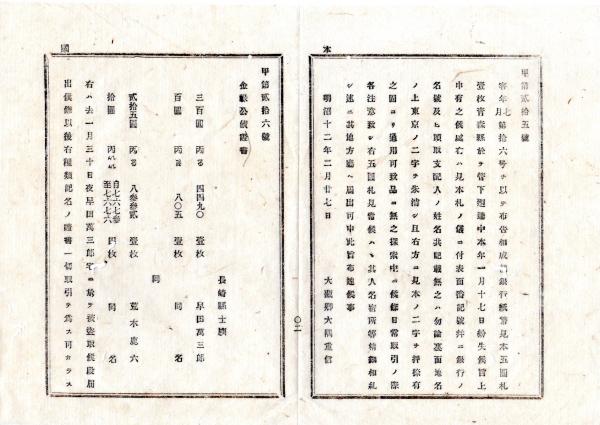 本
甲第貳拾五號
客年七月第拾六号ヲ以テ布告相成候銀行紙幣見本五圓札
壹枚青森縣於テ管下逓送中本年一月十七日紛失候旨上
申有之候處右ハ見本札ノ儀ニ付表面番記號并ニ銀行ノ
名號及ヒ頭取支配人ノ姓名共記載無之ハ勿論裏面地名
ノ上東京ノ二字ヲ朱消シ且右方ニ見本ノ二字ヲ押捺有
之固ヨリ通用可致品ニ無之探索中ニ候條日常取引ノ際
各注意致シ右五圓札見當候ハヽ其人名宿所等精細相糺
シ速ニ其地方廳ヘ届出可申此旨布達候事
明治十二年二月廿七日
大藏卿大隈重信
〇二
國
甲第貳拾六號
金祿公債證書
長崎縣士族
三百圓 丙る 四四九〇 壹枚 早田萬三郎
同
百圓 丙る 八〇五 壹枚 同 名
貳拾五圓 丙る 八参参貳 壹枚 荒木鹿六
拾圓 自七六七参至七六七六 四枚 同 名
右ハ去一月三十日夜早田萬三郎宅ニ於テ被盗取候段届
出候條以後右種類記名ノ證書一切取引ヲ爲ス可カラス